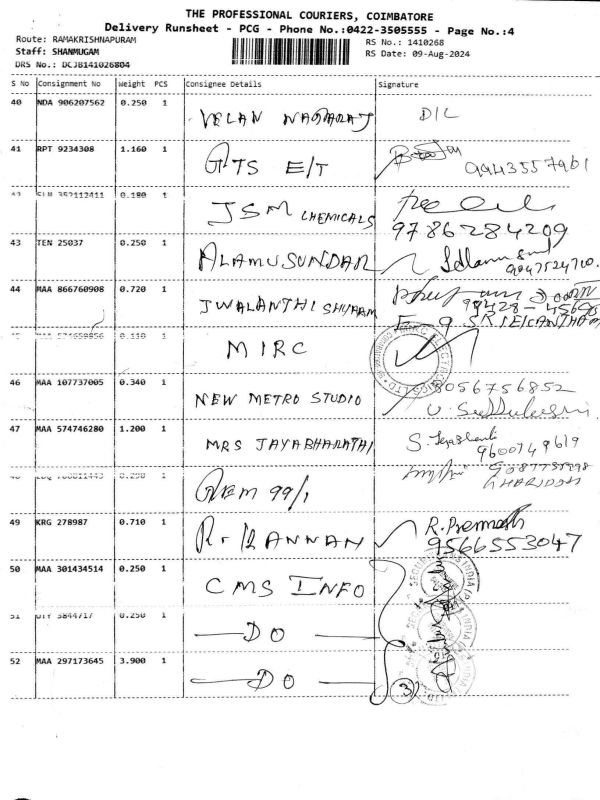 THE PROFESSIONAL COURIERS, COIMBATORE
Delivery Runsheet - PCG - Phone No.:0422-3505555 - Page No.:4
Route: RAMAKRISHNAPURAM
RS No.: 1410268
Staff: SHANMUGAM
RS Date: 09-Aug-2024
DRS No.: DCJB141026804
S No Consignment No Weight PCS Consignee Details Signature
40 NDA 906207562 0.250 1 VELAN NAGARAJ D/L
41 RPT 9234308 1.160 1 GTS E/T
9943557961
0.180 1 JSM CHEMICALS
9786284209
43 TEN 25037 0.250 1 ALAMUSUNDAR
44 MAA 866760908 0.720 1 JWALANTHI
0.110 1 MIRC
46 MAA 107737005 0.340 1 NEW METRO STUDIO 8056756852
47 MAA 574746280 1.200 1 MRS JAYABHARATHI
9600749619
0.290 1 GEM 99/1
49 KRG 278987 0.710 1 R. KANNAN R.
9566553047
50 MAA 301434514 0.250 1 CMS INFO
51 3844717 0.250 1 — DO —
52 MAA 297173645 3.900 1 — DO — 3